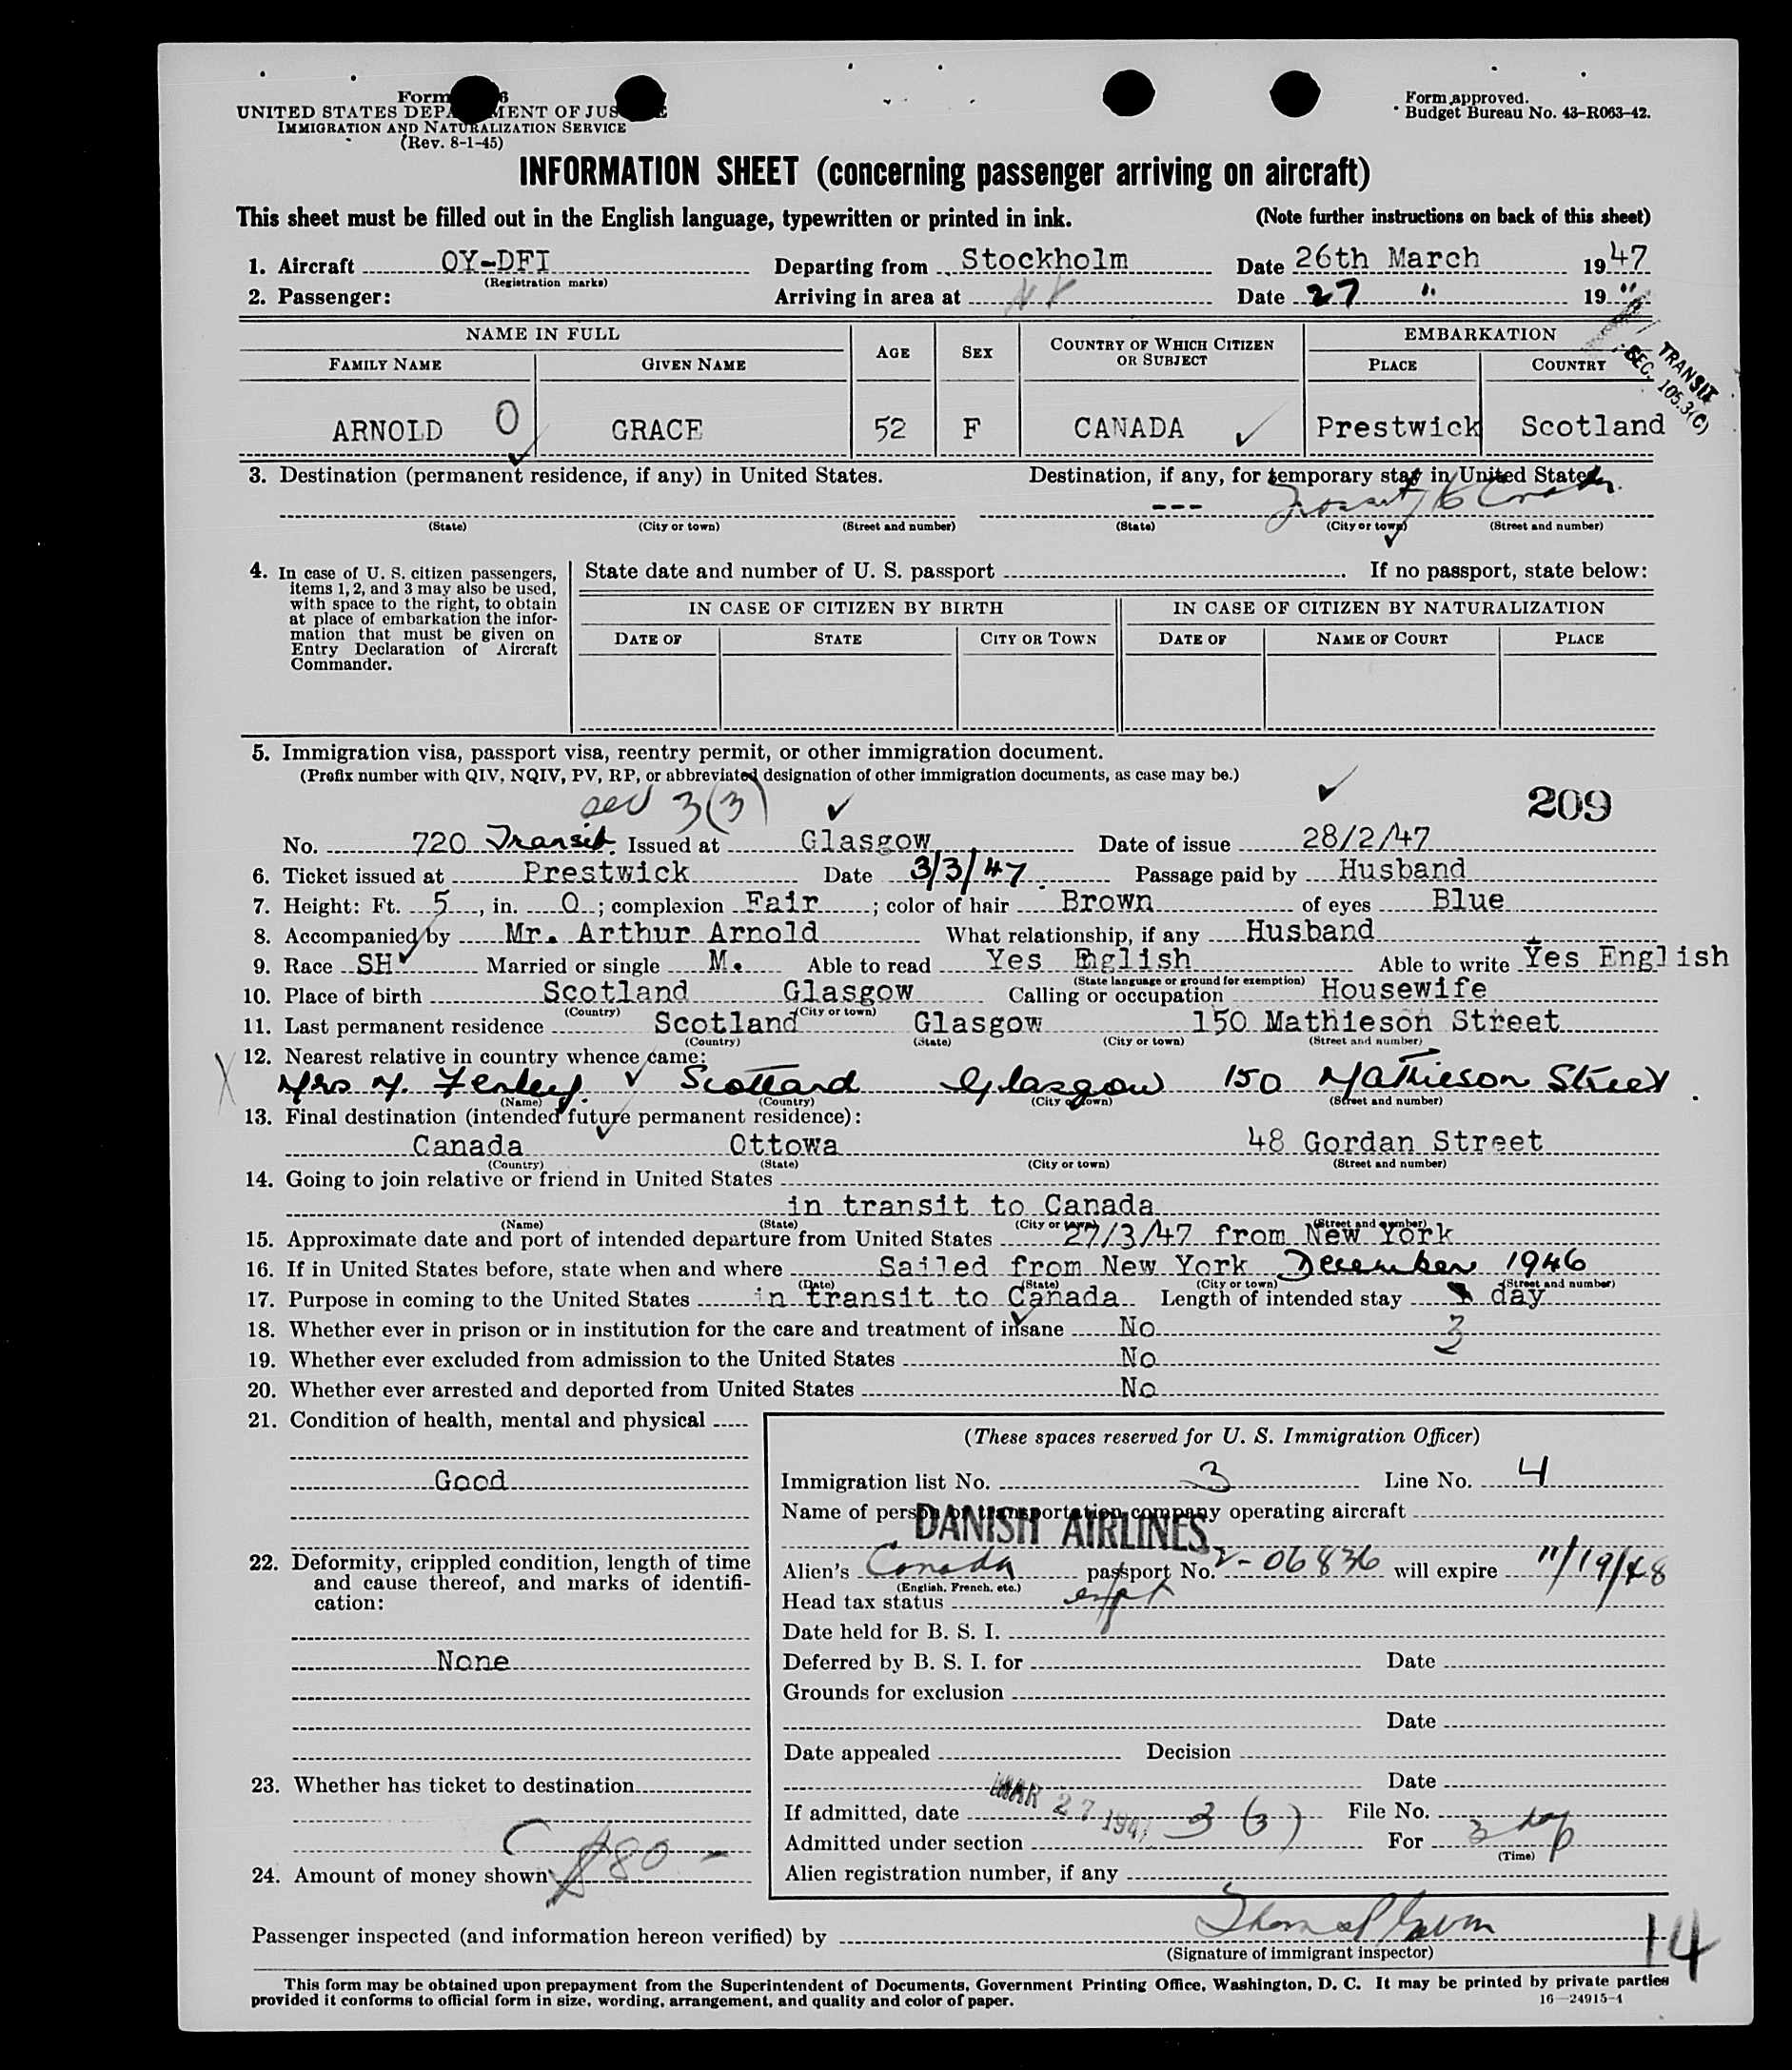 Form
UNITED STATES DEPARTMENT OF JUSTICE
IMMIGRATION AND NATURALIZATION SERVICE
(Rev. 8-1-45)
Form approved.
Budget Bureau No. 43-R063-42.
INFORMATION SHEET (concerning passenger arriving on aircraft)
This sheet must be filled out in the English language, typewritten or printed in ink. (Note further instructions on back of this sheet)
1. Aircraft OY-DFI Departing from Stockholm Date 26th March 1947
(Registration marks)
2. Passenger: Arriving in area at NY Date 27 " 19 "
TRANSIT
SEC. 105.3(C)
NAME IN FULL AGE SEX COUNTRY OF WHICH CITIZEN OR SUBJECT EMBARKATION
FAMILY NAME GIVEN NAME PLACE COUNTRY
ARNOLD O GRACE 52 F CANADA Prestwick Scotland
3. Destination (permanent residence, if any) in United States. Destination, if any, for temporary stay in United States.
--- Transit to Canada
(State) (City or town) (Street and number) (State) (City or town) (Street and number)
4. In case of U. S. citizen passengers, items 1, 2, and 3 may also be used, with space to the right, to obtain at place of embarkation the information that must be given on Entry Declaration of Aircraft Commander.
State date and number of U. S. passport If no passport, state below:
IN CASE OF CITIZEN BY BIRTH IN CASE OF CITIZEN BY NATURALIZATION
DATE OF STATE CITY OR TOWN DATE OF NAME OF COURT PLACE
5. Immigration visa, passport visa, reentry permit, or other immigration document.
(Prefix number with QIV, NQIV, PV, RP, or abbreviated designation of other immigration documents, as case may be.)
sec 3(3) 209
No. 720 Transit. Issued at Glasgow Date of issue 28/2/47
6. Ticket issued at Prestwick Date 3/3/47. Passage paid by Husband
7. Height: Ft. 5, in. 0; complexion Fair; color of hair Brown of eyes Blue
8. Accompanied by Mr. Arthur Arnold What relationship, if any Husband
9. Race SH Married or single M. Able to read Yes English Able to write Yes English
(State language or ground for exemption)
10. Place of birth Scotland Glasgow Calling or occupation Housewife
(Country) (City or town)
11. Last permanent residence Scotland Glasgow 150 Mathieson Street
(Country) (State) (City or town) (Street and number)
12. Nearest relative in country whence came:
Mrs M. Fenley. Scotland Glasgow 150 Mathieson Street
(Name) (Country) (City or town) (Street and number)
13. Final destination (intended future permanent residence):
Canada Ottowa 48 Gordan Street
(Country) (State) (City or town) (Street and number)
14. Going to join relative or friend in United States
in transit to Canada
(Name) (State) (City or town) (Street and number)
15. Approximate date and port of intended departure from United States 27/3/47 from New York
16. If in United States before, state when and where Sailed from New York December 1946
(Date) (State) (City or town) (Street and number)
17. Purpose in coming to the United States in transit to Canada Length of intended stay day
3
18. Whether ever in prison or in institution for the care and treatment of insane No
19. Whether ever excluded from admission to the United States No
20. Whether ever arrested and deported from United States No
21. Condition of health, mental and physical
Good
22. Deformity, crippled condition, length of time and cause thereof, and marks of identification:
None
23. Whether has ticket to destination
24. Amount of money shown $80 -
(These spaces reserved for U. S. Immigration Officer)
Immigration list No. 3 Line No. 4
Name of person or transportation company operating aircraft
DANISH AIRLINES
Alien's Canada passport No. 2-06836 will expire 11/19/48
(English, French, etc.)
Head tax status
Date held for B. S. I.
Deferred by B. S. I. for Date
Grounds for exclusion
Date
Date appealed Decision
Date
If admitted, date MAR 27 1947 File No.
Admitted under section 3 (3) For 3 days
(Time)
Alien registration number, if any
Passenger inspected (and information hereon verified) by
(Signature of immigrant inspector)
14
This form may be obtained upon prepayment from the Superintendent of Documents, Government Printing Office, Washington, D. C. It may be printed by private parties
provided it conforms to official form in size, wording, arrangement, and quality and color of paper.
16—24915-1